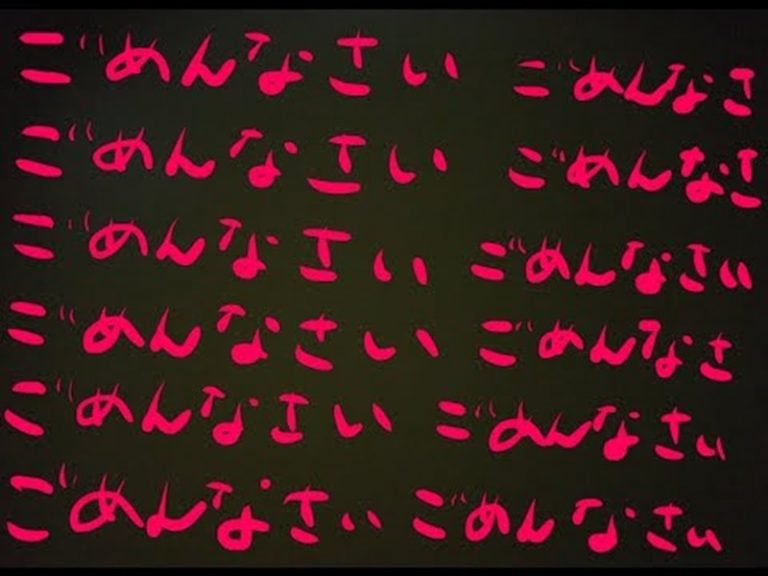 ごめんなさい ごめんなさ
ごめんなさい ごめんなさ
ごめんなさい ごめんなさい
ごめんなさい ごめんなさ
ごめんなさい ごめんなさい
ごめんなさい ごめんなさい